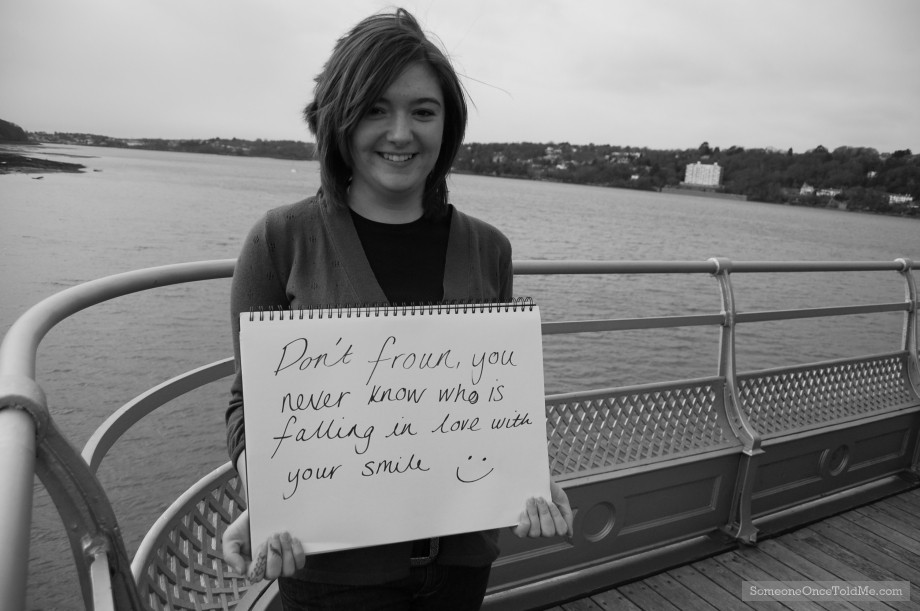 Don't frown, you
never know who is
falling in love with
your smile :)
SomeoneOnceToldMe.com